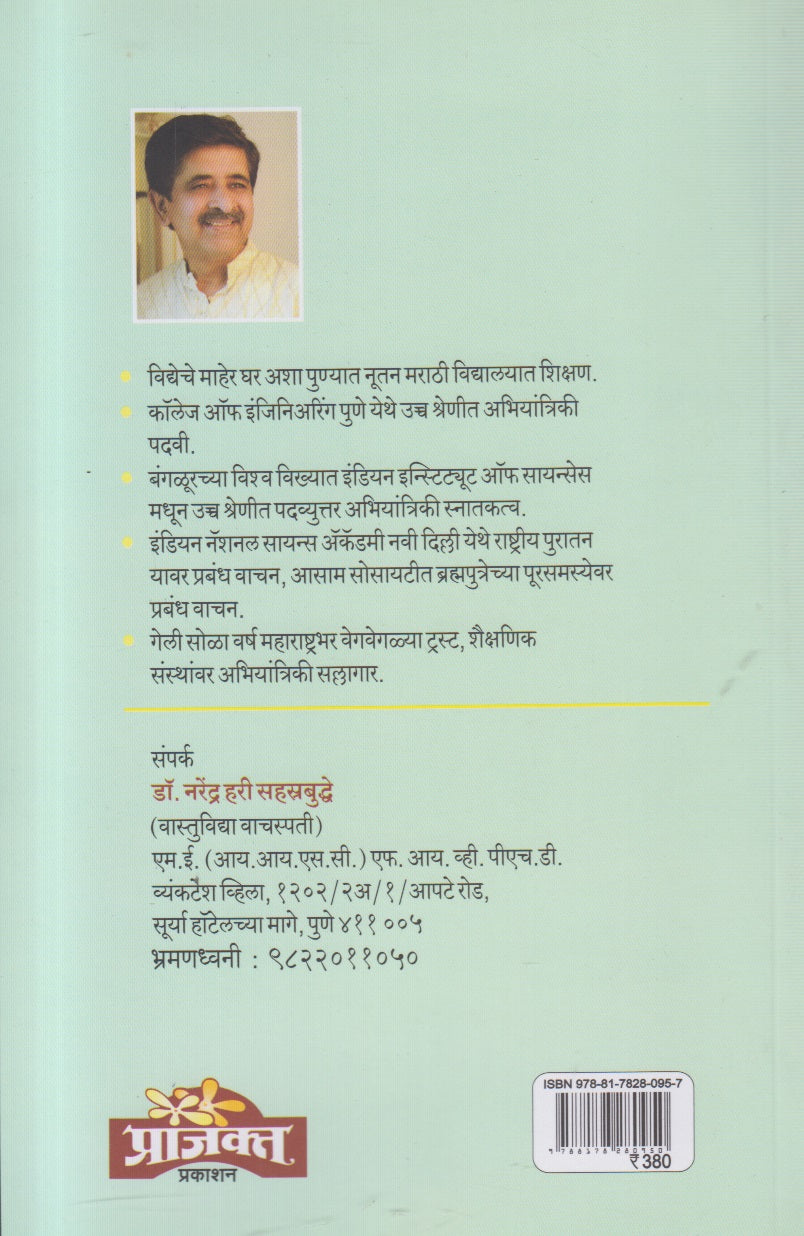 विद्येचे माहेर घर अशा पुण्यात नूतन मराठी विद्यालयात शिक्षण.
कॉलेज ऑफ इंजिनिअरिंग पुणे येथे उच्च श्रेणीत अभियांत्रिकी
पदवी.
बंगळूरच्या विश्व विख्यात इंडियन इन्स्टिट्यूट ऑफ सायन्सेस
मधून उच्च श्रेणीत पदव्युत्तर अभियांत्रिकी स्नातकत्व.
इंडियन नॅशनल सायन्स ॲकॅडमी नवी दिल्ली येथे राष्ट्रीय पुरातन
यावर प्रबंध वाचन, आसाम सोसायटीत ब्रह्मपुत्रेच्या पूरसमस्येवर
प्रबंध वाचन.
गेली सोळा वर्ष महाराष्ट्रभर वेगवेगळ्या ट्रस्ट, शैक्षणिक
संस्थांवर अभियांत्रिकी सल्लागार.
संपर्क
डॉ. नरेंद्र हरी सहस्रबुद्धे
(वास्तुविद्या वाचस्पती)
एम.ई. (आय.आय.एस.सी.) एफ. आय. व्ही. पीएच.डी.
व्यंकटेश व्हिला, १२०२/२अ/१/आपटे रोड,
सूर्या हॉटेलच्या मागे, पुणे ४११ ००५
भ्रमणध्वनी : ९८२२०११०५०
प्राजक्त
प्रकाशन
ISBN 978-81-7828-095-7
9 788178 280950
₹ 380